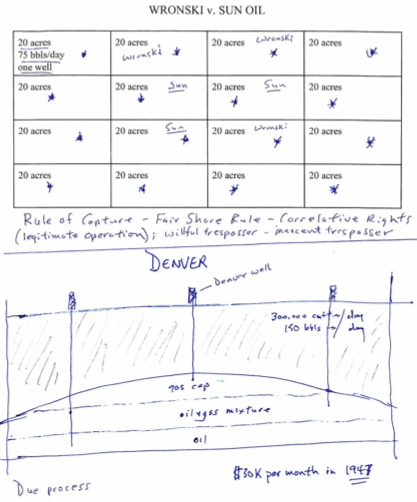 WRONSKI v. SUN OIL
20 acres
75 bbls/day
one well
20 acres
Wronski
20 acres Wronski
20 acres
20 acres
20 acres Sun
20 acres Sun
20 acres
20 acres
20 acres Sun
20 acres Wronski
20 acres
20 acres
20 acres
20 acres
20 acres
Rule of Capture - Fair Share Rule - Correlative Rights
(legitimate operation); willful trespasser - innocent trespasser
DENVER
Denver well
300,000 cuft / day
150 bbls / day
gas cap
oil & gas mixture
oil
$30K per month in 1947
Due process